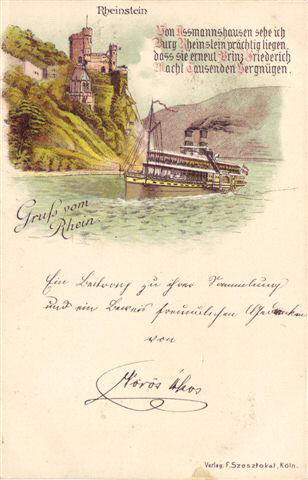 Rheinstein
Von Assmannshausen sehe ich
Burg Rheinstein prächtig liegen,
dass sie erneut Prinz Friederich
Macht Tausenden Vergnügen.
Gruß vom
Rhein.
Ein Beitrag zu ihrer Sammlung
und ein Beweis freundlichen Gedenkens
von
Verlag: F. Szesztokat, Köln.